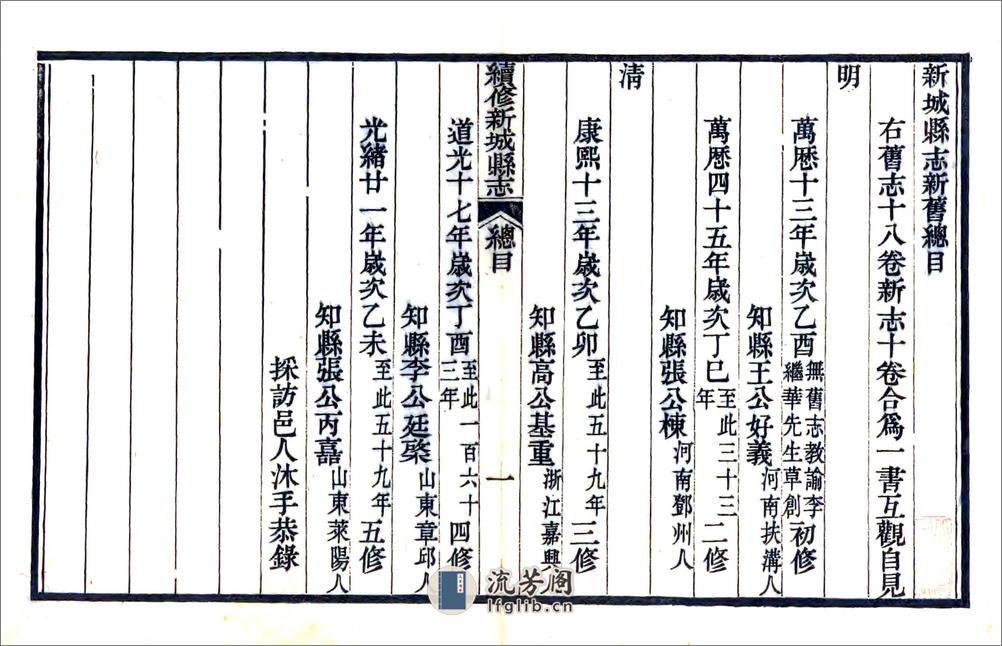 新城縣志新舊總目
右舊志十八卷新志十卷合爲一書互觀自見
明
萬歷十三年歲次乙酉無舊志教諭李繼華先生草創初修
知縣王公好義河南扶溝人
萬歷四十五年歲次丁巳至此三十三年二修
知縣張公棟河南鄧州人
清
康熙十三年歲次乙卯至此五十九年三修
知縣高公基重浙江嘉興
續修新城縣志 總目 一
道光十七年歲次丁酉至此一百六十三年四修
知縣李公廷棨山東章邱人
光緒廿一年歲次乙未至此五十九年五修
知縣張公丙嘉山東萊陽人
採訪邑人沐手恭錄
流芳阁
lfglib.cn